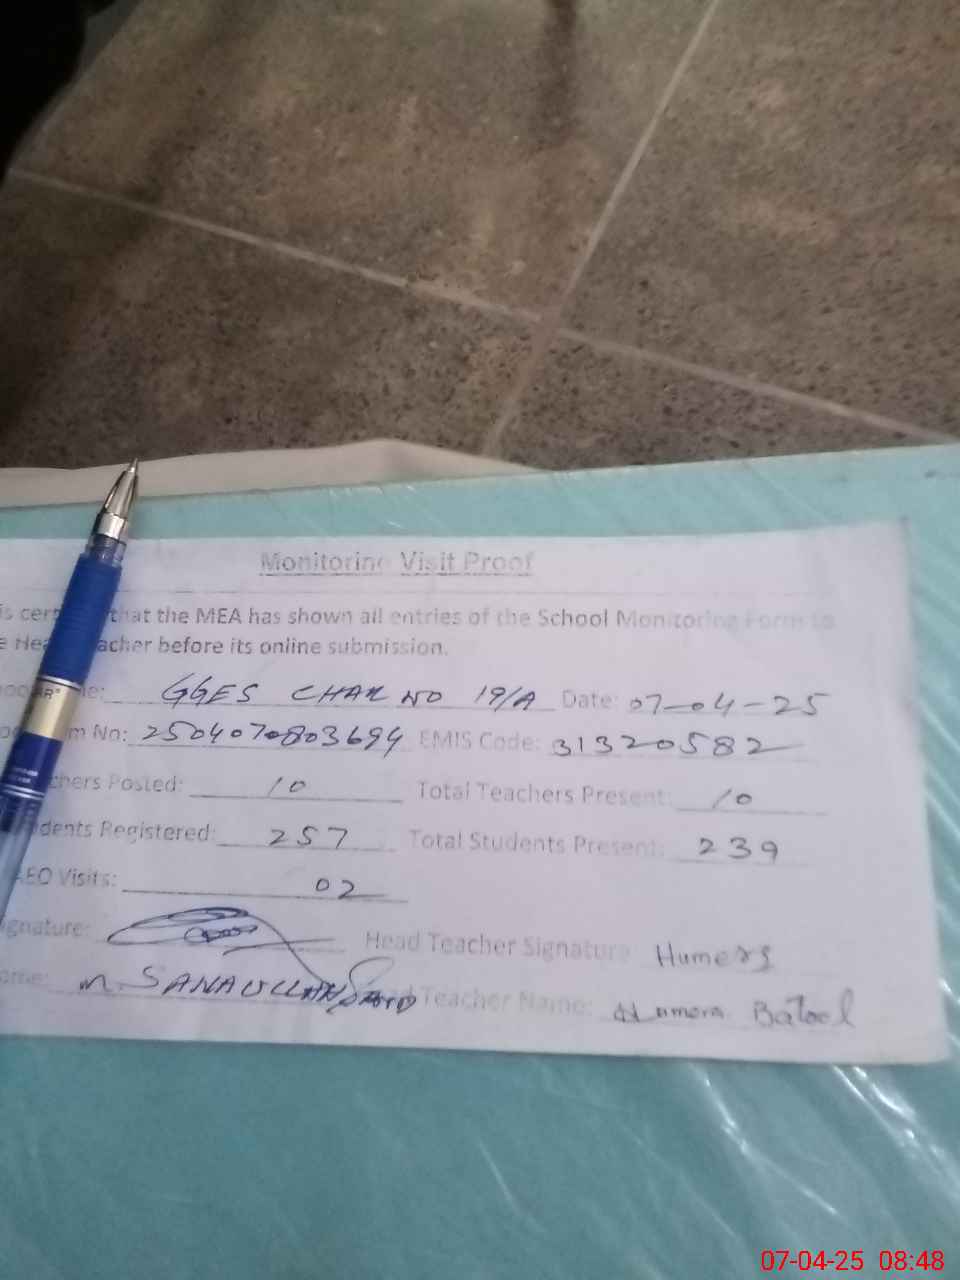 Monitoring Visit Proof
is cert that the MEA has shown all entries of the School Monitoring Form to
e Hea acher before its online submission.
me: GGES CHAK NO 19/A Date: 07-04-25
m No: 2504070803694 EMIS Code: 31320582
chers Posted: 10 Total Teachers Present: 10
dents Registered: 257 Total Students Present: 239
AEO Visits: 02
ignature: Head Teacher Signature Humera
ame: M. SANAULLAH Teacher Name: Humera Batool
07-04-25 08:48